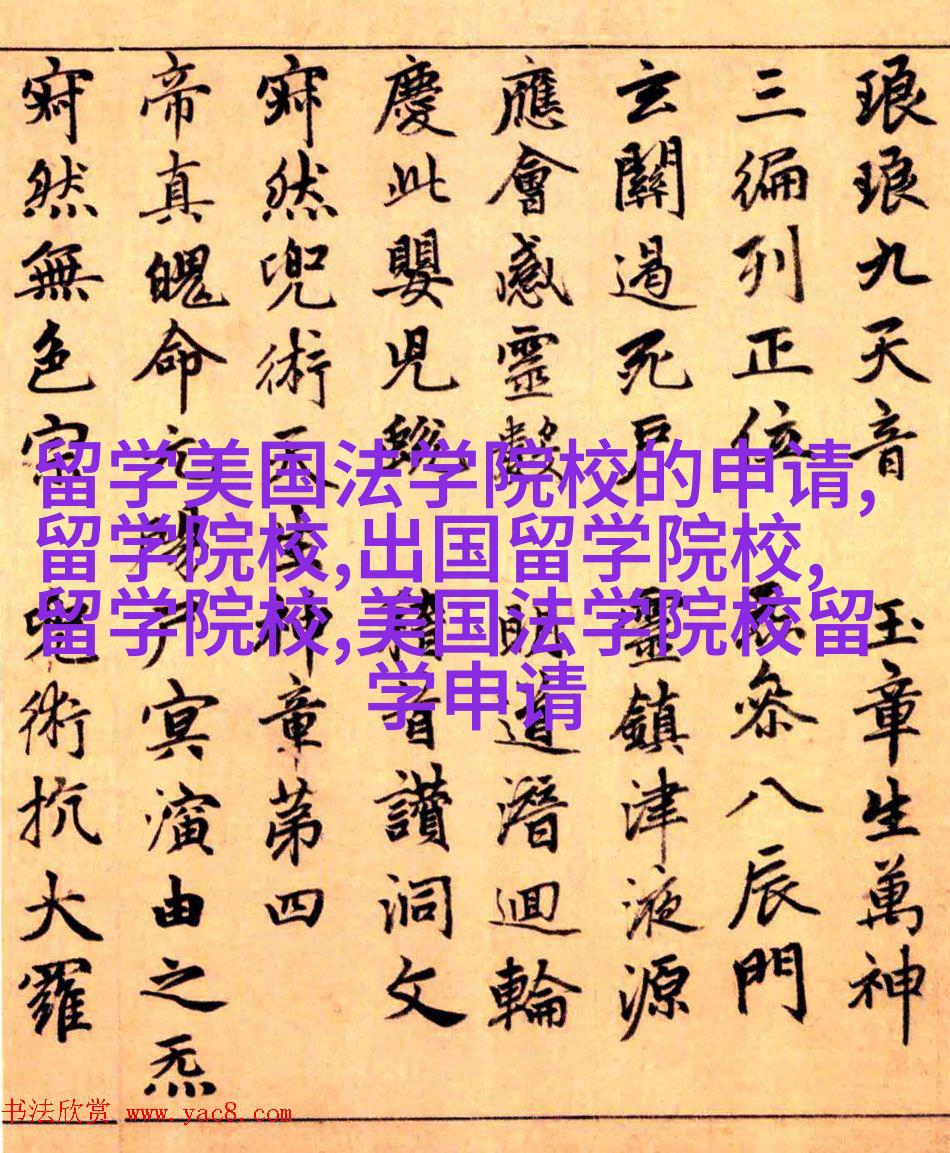 琅琅九天音 玉章生萬神
三編列正位 叅八辰門
玄關遏死戶 靈鎮津液源
應會感靈數 明道潛迴輪
慶此嬰兒 首讚洞文
寂然兜術天生神章第四
帝真魄命元 冥演由之炁
寂然無色宗兜術抗大羅
留学美国法学院校的申请,
留学院校,出国留学院校,
留学院校,美国法学院校留
学申请
书法欣赏 www.yac8.com